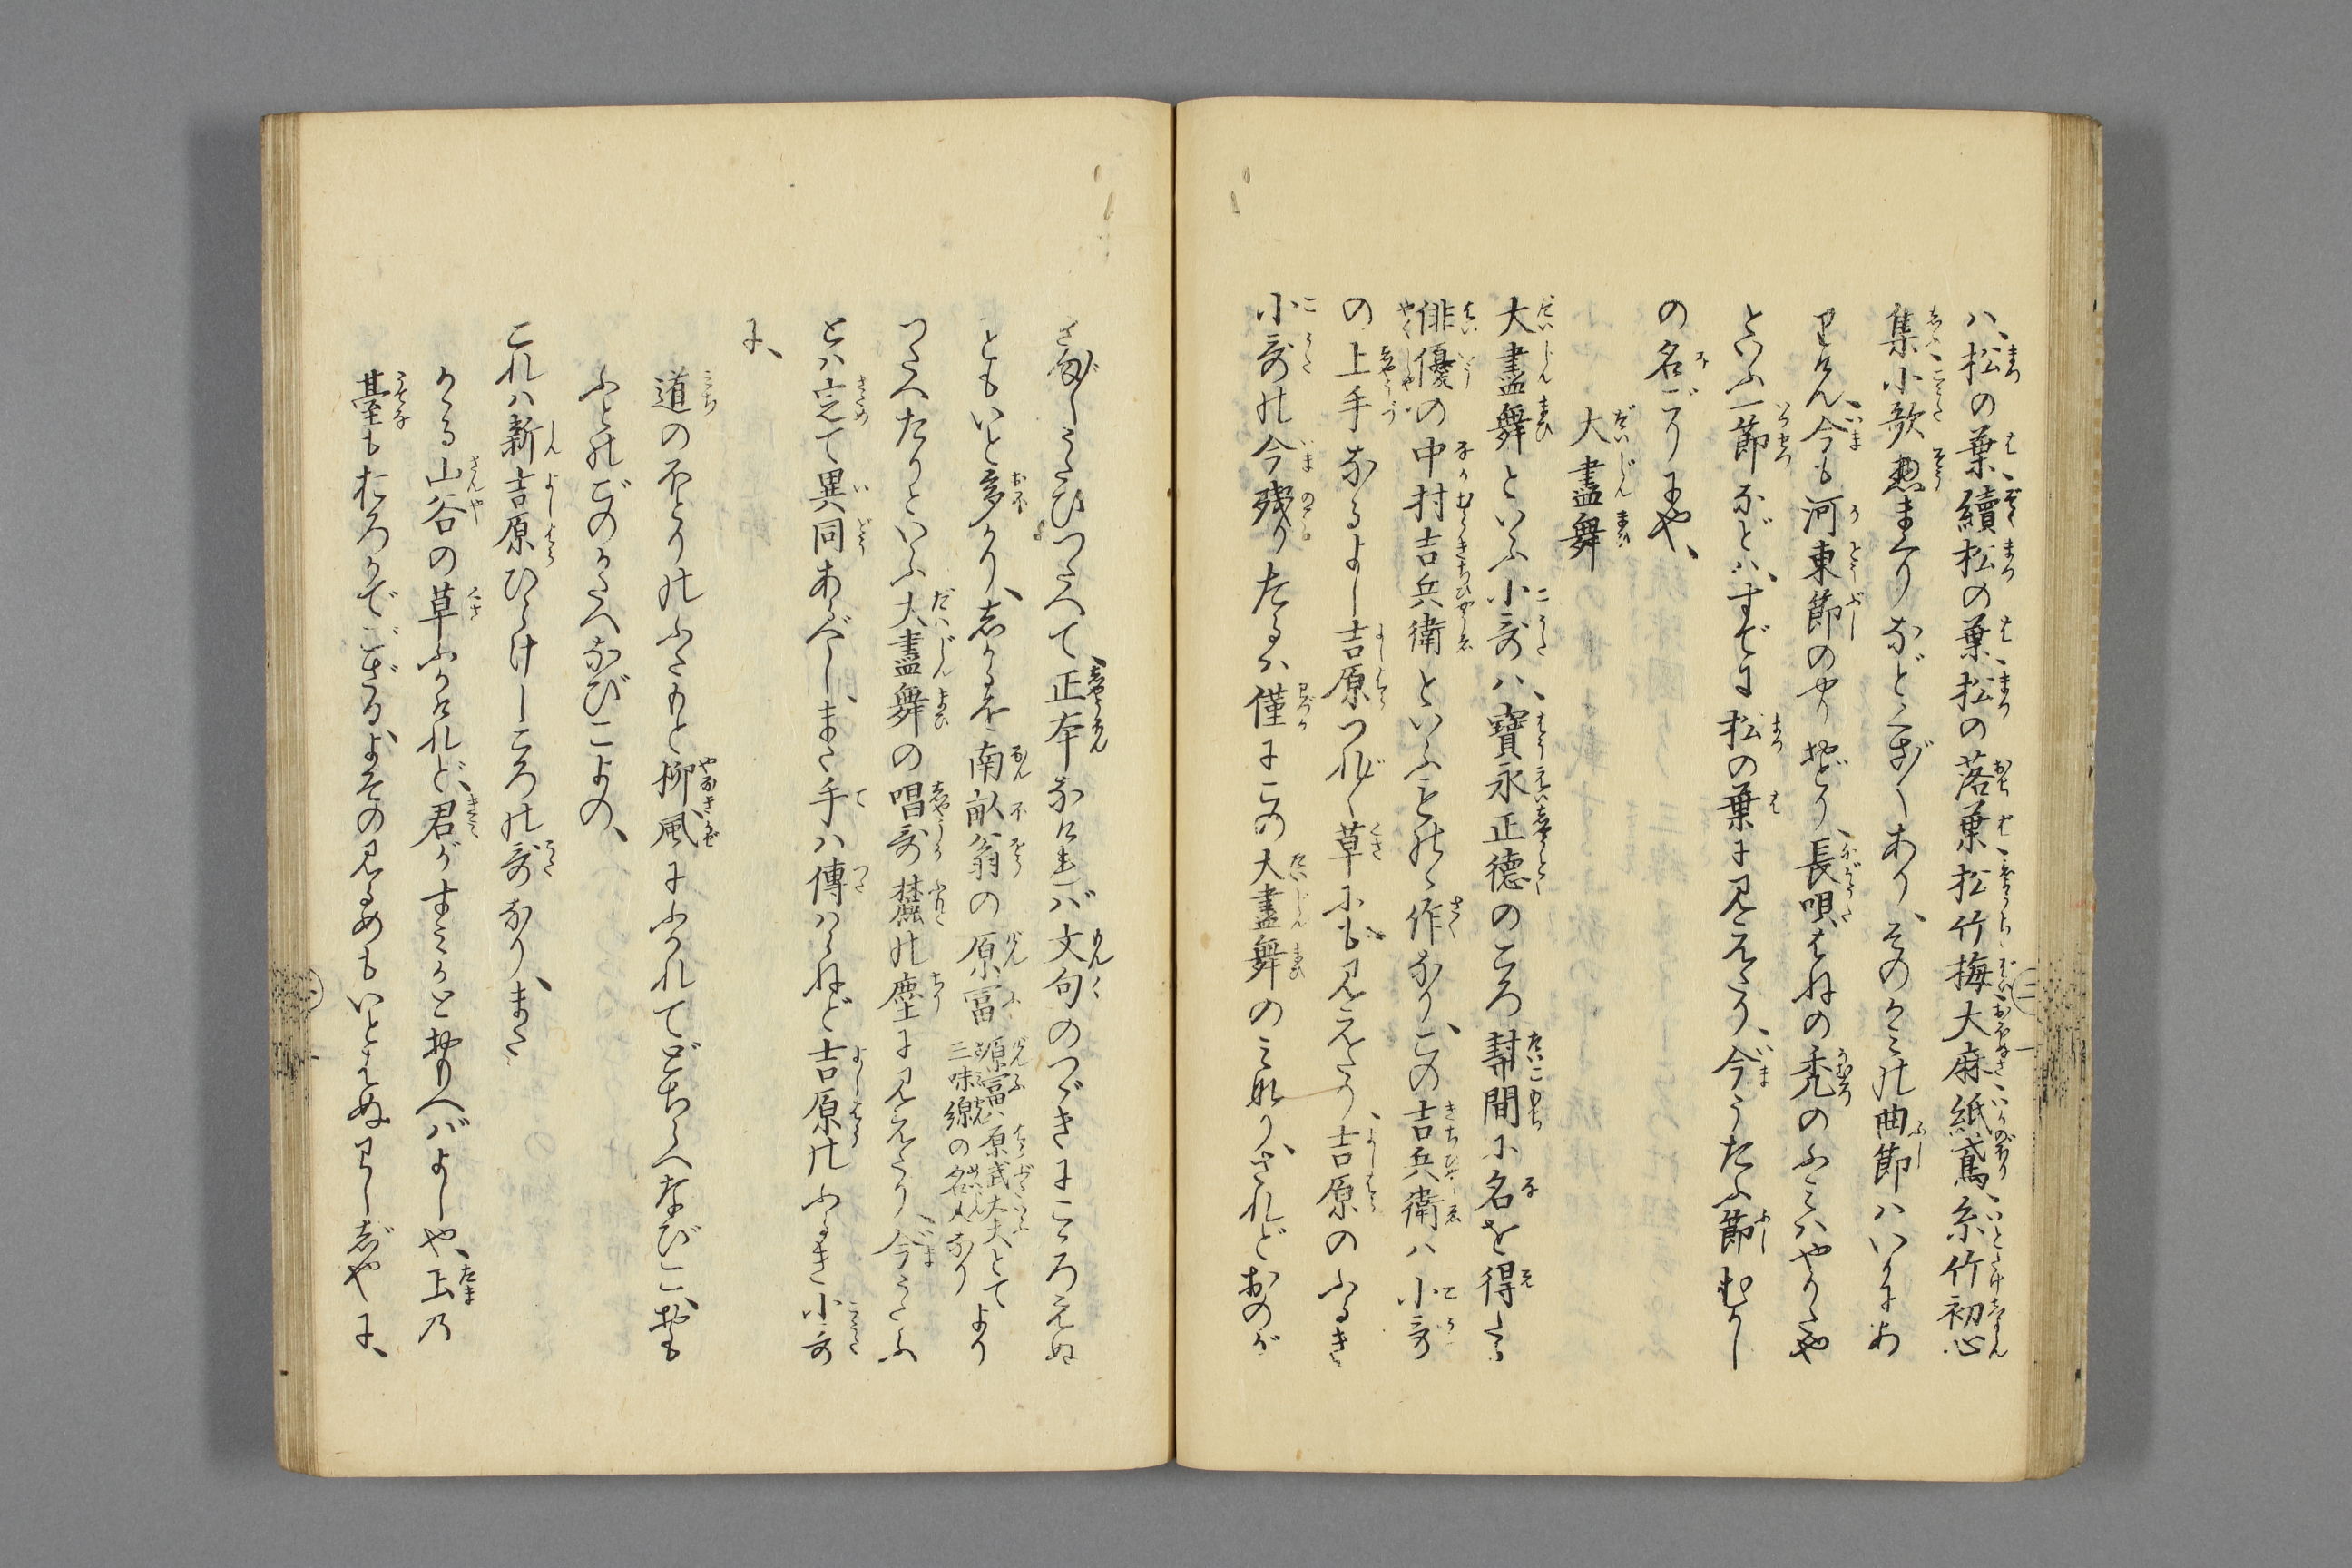 ハ、松の葉、續松の葉、松の落葉、松竹梅、大麻、紙鳶、糸竹初心
集、小歌惣まくりなどくさ〴〵あり、そのかミの曲節ハいかにあ
りけん、今も河東節のやりをどり、長唄はねの禿のふミハやりたや
といふ一節などハ、すでに松の葉に見えたり、今うたふ節むかし
の名ごりにや、
大盡舞
大盡舞といふ小哥ハ、寶永正德のころ幇間に名を得たる
俳優の中村吉兵衛といふものゝ作なり、この吉兵衛ハ小哥
の上手なるよし吉原つれ〴〵草にも見えたり、吉原のふるき
小哥の今殘りたるは僅にこの大盡舞のミなり、されどおのが
さま〴〵うたひつたへて、正本なけれバ文句のつゞきにこゝろえぬ
こともいと多かり、しかるを南畝翁の原富 原富ハ原武太夫とて三味線の名人なり より
つたへたりといふ大盡舞の唱哥麓の塵に見えたり、今うたふ
とハ定て異同あるべし、また手ハ傳ハらねど吉原のふるき小哥
に、
道のほとりのふたもと柳、風にふかれてどちらへなびこ、おも
ふとのごのかたへなびこよの、
これハ新吉原ひらけしころの哥なり、また
かゝる山谷の草ふかけれど、君がすミかとおもへバよしや、玉の
臺もおろかでござる、よその見るめもいとはぬわしじやに、